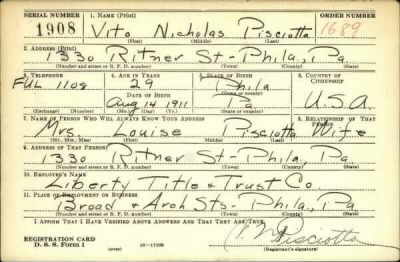 SERIAL NUMBER 1. NAME (Print) ORDER NUMBER
1908 Vito Nicholas Pisciotta 1689
(First) (Middle) (Last)
2. ADDRESS (Print)
1330 Ritner St- Phila., Pa
(Number and street or R. F. D. number) (Town) (County) (State)
3. TELEPHONE 4. AGE IN YEARS 5. PLACE OF BIRTH 6. COUNTRY OF CITIZENSHIP
FUL 1108 29 Phila
DATE OF BIRTH (Town or county)
Aug 14 1911 Pa U.S.A.
(Exchange) (Number) (Mo.) (Day) (Yr.) (State or country)
7. NAME OF PERSON WHO WILL ALWAYS KNOW YOUR ADDRESS 8. RELATIONSHIP OF THAT PERSON
Mrs. Louise Pisciotta Wife
(Mr., Mrs., Miss) (First) (Middle) (Last)
9. ADDRESS OF THAT PERSON
1330 Ritner St- Phila. Pa
(Number and street or R. F. D. number) (Town) (County) (State)
10. EMPLOYER'S NAME
Liberty Title & Trust Co
11. PLACE OF EMPLOYMENT OR BUSINESS
Broad & Arch Sts- Phila., Pa
(Number and street or R. F. D. number) (Town) (County) (State)
I AFFIRM THAT I HAVE VERIFIED ABOVE ANSWERS AND THAT THEY ARE TRUE.
REGISTRATION CARD
D. S. S. Form 1 Pisciotta
(Registrant's signature)